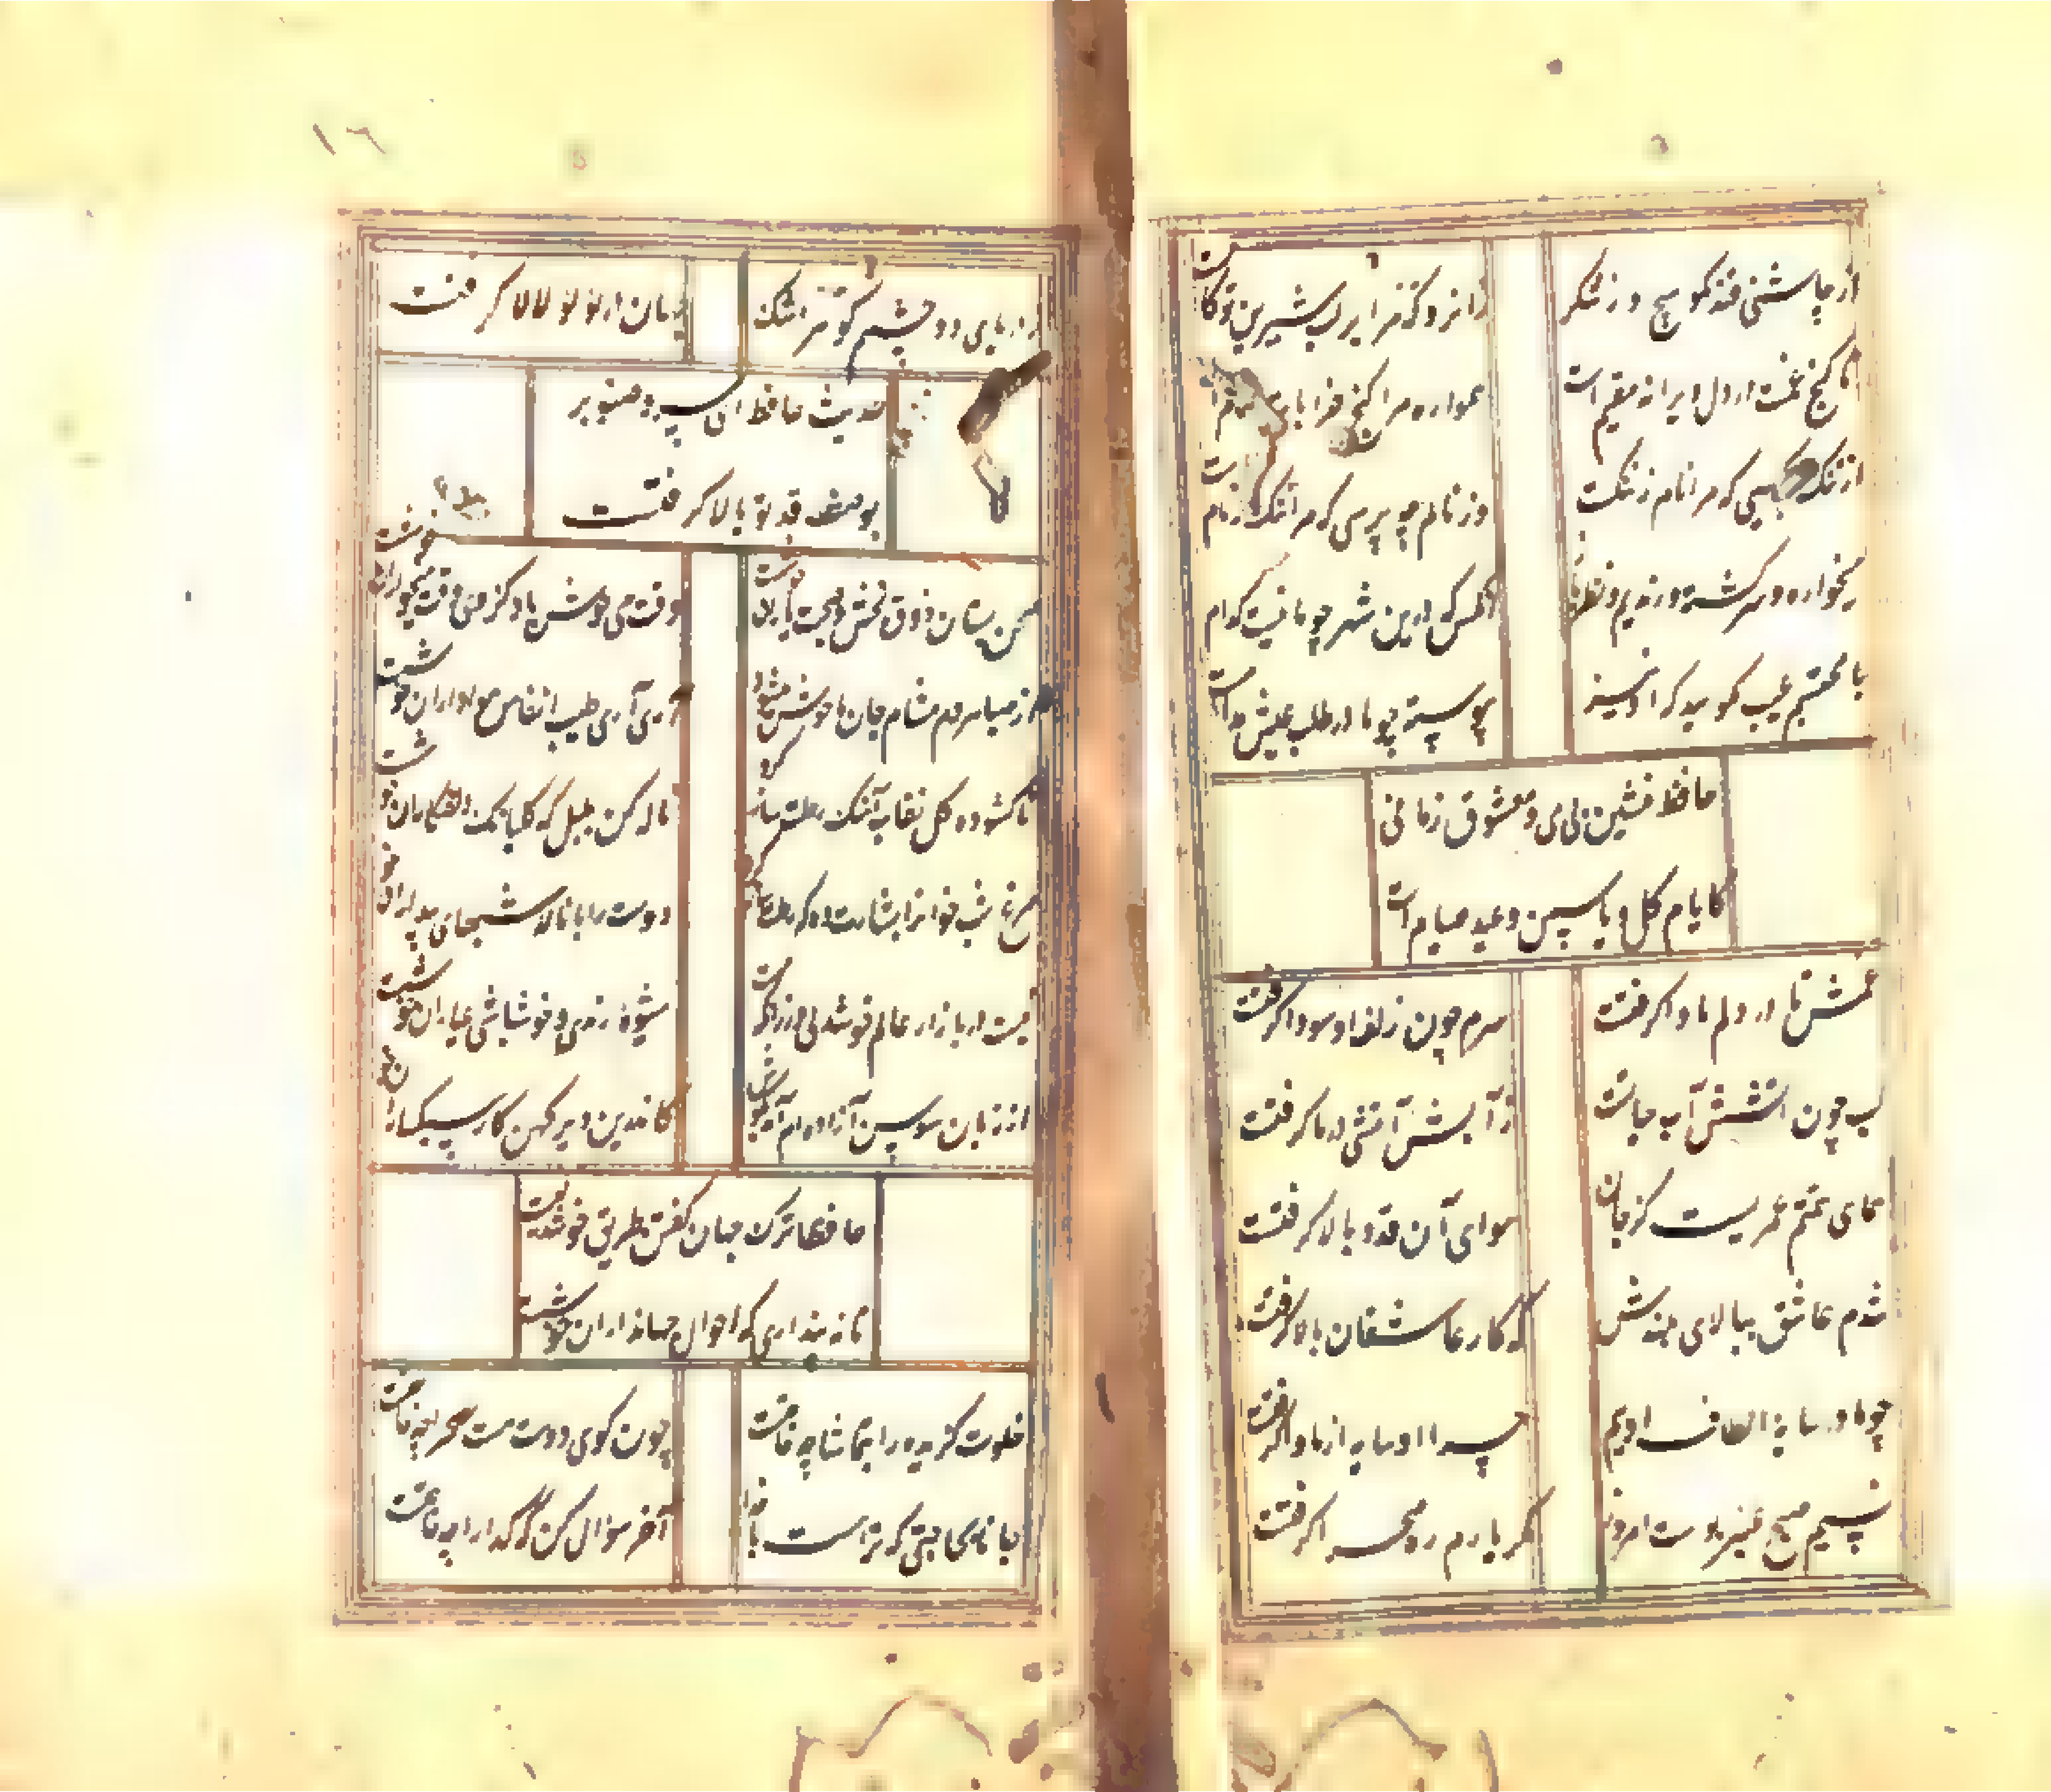 از چاشنی قند مگو هیچ و ز شکر
زانرو که مرا بر لب شیرین تو کامست
تا گنج غمت در دل ویرانه مقیم است
همواره مرا کنج خرابات مقام است
از ننگ چه گویی که مرا نام ز ننگست
وز نام چه پرسی که مرا ننگ ز نام است
میخواره و سرگشته و رندیم و نظرباز
آنکس که درین شهر چو ما نیست کدام است
با محتسبم عیب مگویید که او نیز
پیوسته چو ما در طلب عیش مدام است
حافظ منشین بی می و معشوق زمانی
کایام گل و یاسمین و عید صیام است
غمش تا در دلم ماوا گرفت
سرم چون زلف او سودا گرفتست
لب چون آتشش آب حیاتست
از آبش آتشی در ما گرفتست
همای همتم عمریست کز جان
هوای آن قد و بالا گرفتست
شدم عاشق ببالای بلندش
که کار عاشقان بالا گرفتست
چو ما در سایه الطاف اویم
چرا او سایه از ما وا گرفت
نسیم صبح عنبربوست امروز
مگر یارم ره صحرا گرفتست
۱۶
ز دریای دو چشمم گوهر اشک
جهان در لولو لالا گرفتست
حدیث حافظ ای سرو صنوبر
بوصف قد تو بالا گرفتست
صحن بستان ذوق بخش و صحبت یاران خوشست
وقت گل خوش باد کز وی وقت میخواران خوشست
از صبا هر دم مشام جان ما خوش میشود
آری آری طیب انفاس هواداران خوشست
ناگشوده گل نقاب آهنگ رحلت ساز کرد
ناله کن بلبل که گلبانگ دل افکاران خوشست
مرغ شب خوانرا بشارت باد کاندر راه عشق
دوست را با ناله شبهای بیداران خوشست
نیست در بازار عالم خوشدلی ور زانکه هست
شیوه رندی و خوشباشی عیاران خوشست
از زبان سوسن آزاده ام آمد بگوش
کاندرین دیر کهن کار سبکباران خوشست
حافظا ترک جهان گفتن طریق خوشدلیست
تا نه پنداری که احوال جهانداران خوشست
خلوت گزیده را بتماشا چه حاجتست
چون کوی دوست هست بصحرا چه حاجتست
جانا بحاجتی که ترا هست با خدا
آخر سؤال کن که گدا را چه حاجتست